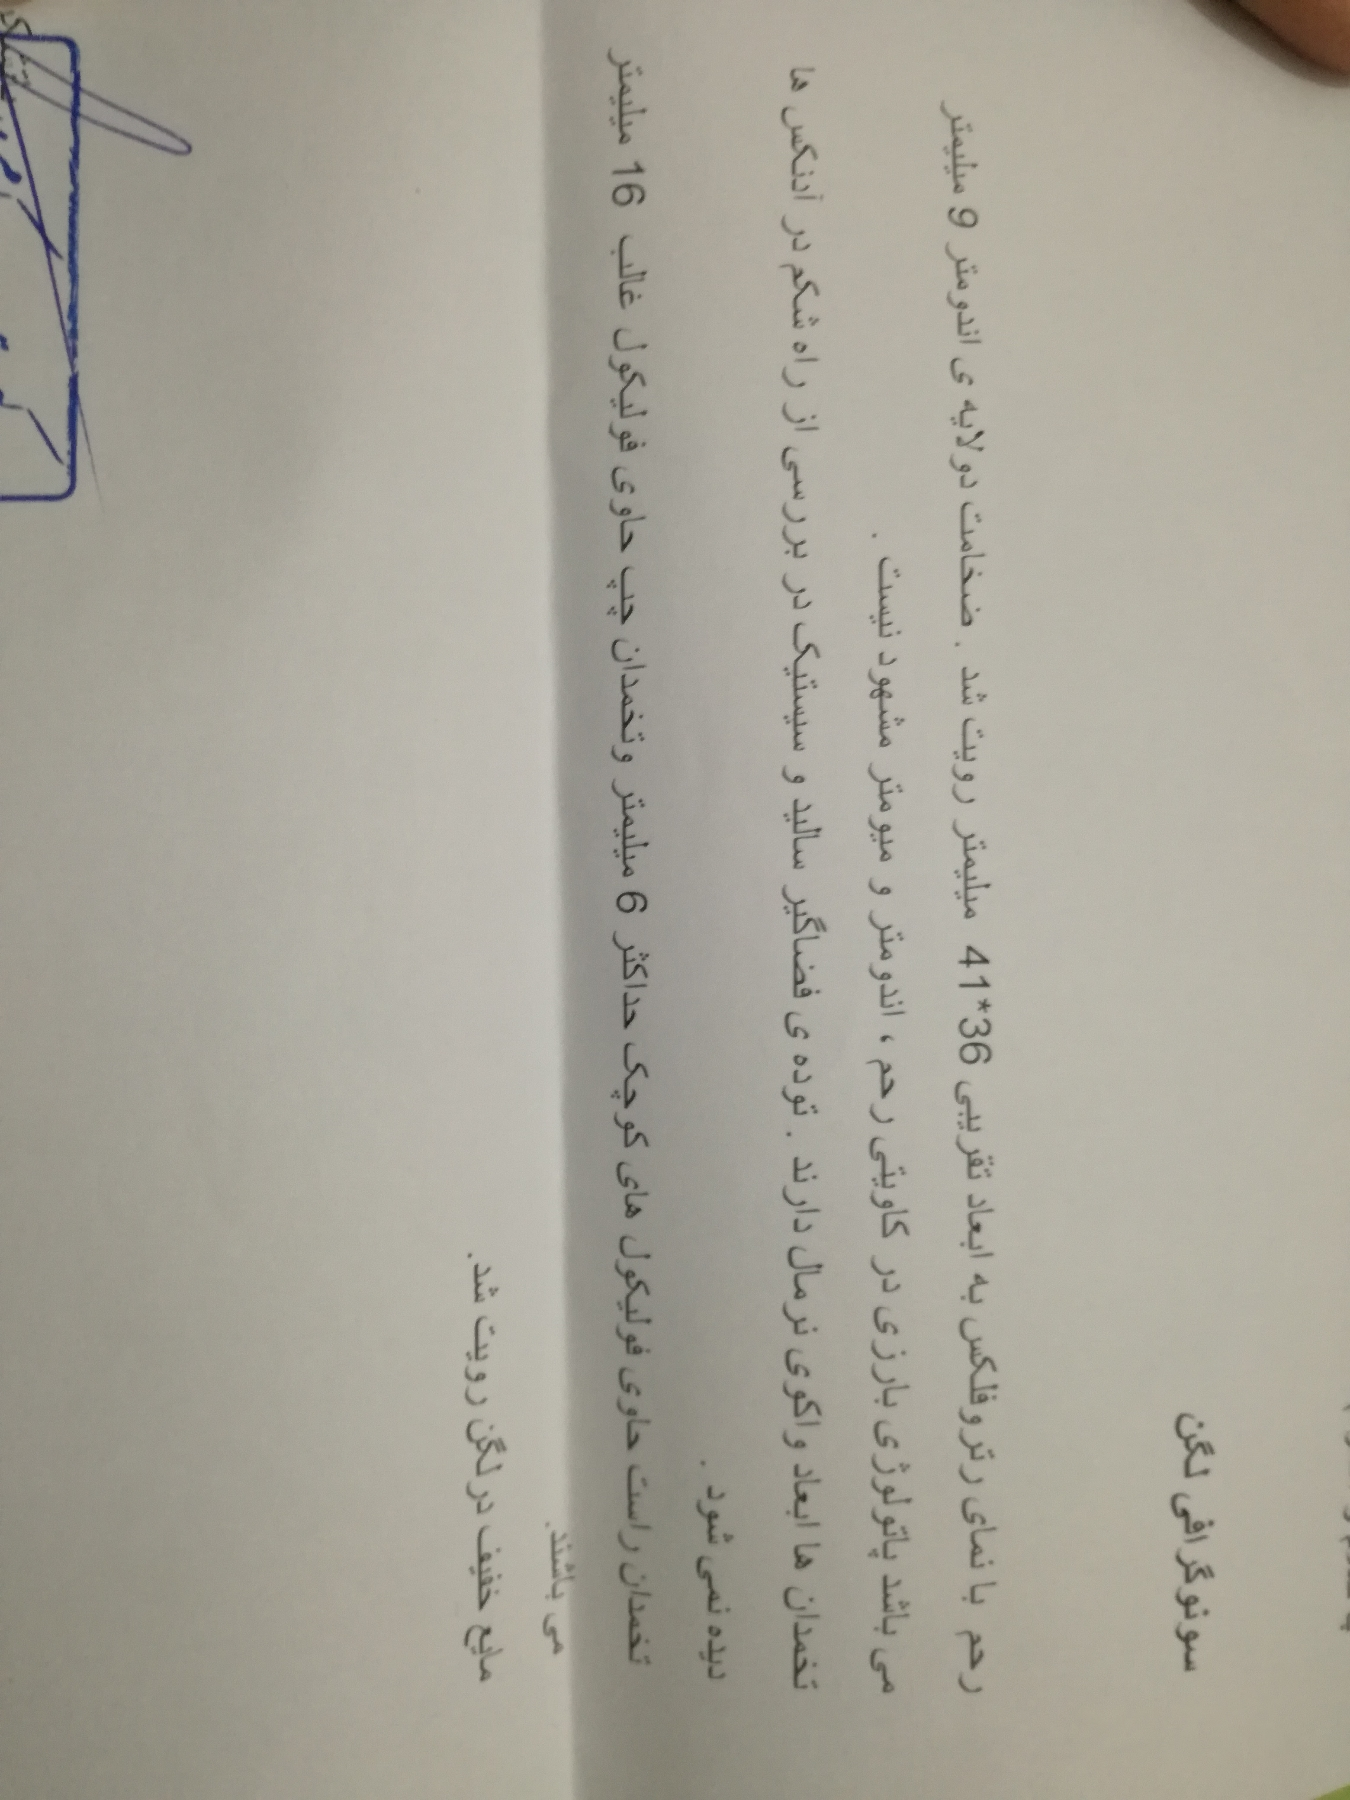 سونوگرافی لگن
رحم با نمای رتروفلکس به ابعاد تقریبی 36*41 میلیمتر رویت شد . ضخامت دولایه ی اندومتر 9 میلیمتر
می باشد پاتولوژی بارزی در کاویتی رحم ، اندومتر و میومتر مشهود نیست .
تخمدان ها ابعاد واکوی نرمال دارند . توده ی فضاگیر سالید و سیستیک در بررسی از راه شکم در آدنکس ها
دیده نمی شود .
تخمدان راست حاوی فولیکول های کوچک حداکثر 6 میلیمتر وتخمدان چپ حاوی فولیکول غالب 16 میلیمتر
می باشند.
مایع خفیف در لگن رویت شد.